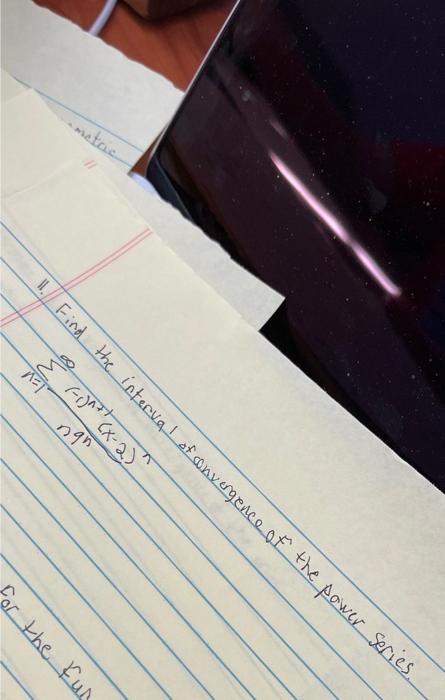 metric
11. Find the interval of convergence of the power series.
∞
Σ (-1)n+1 (x-2)n
n=1 n9n
For the fun